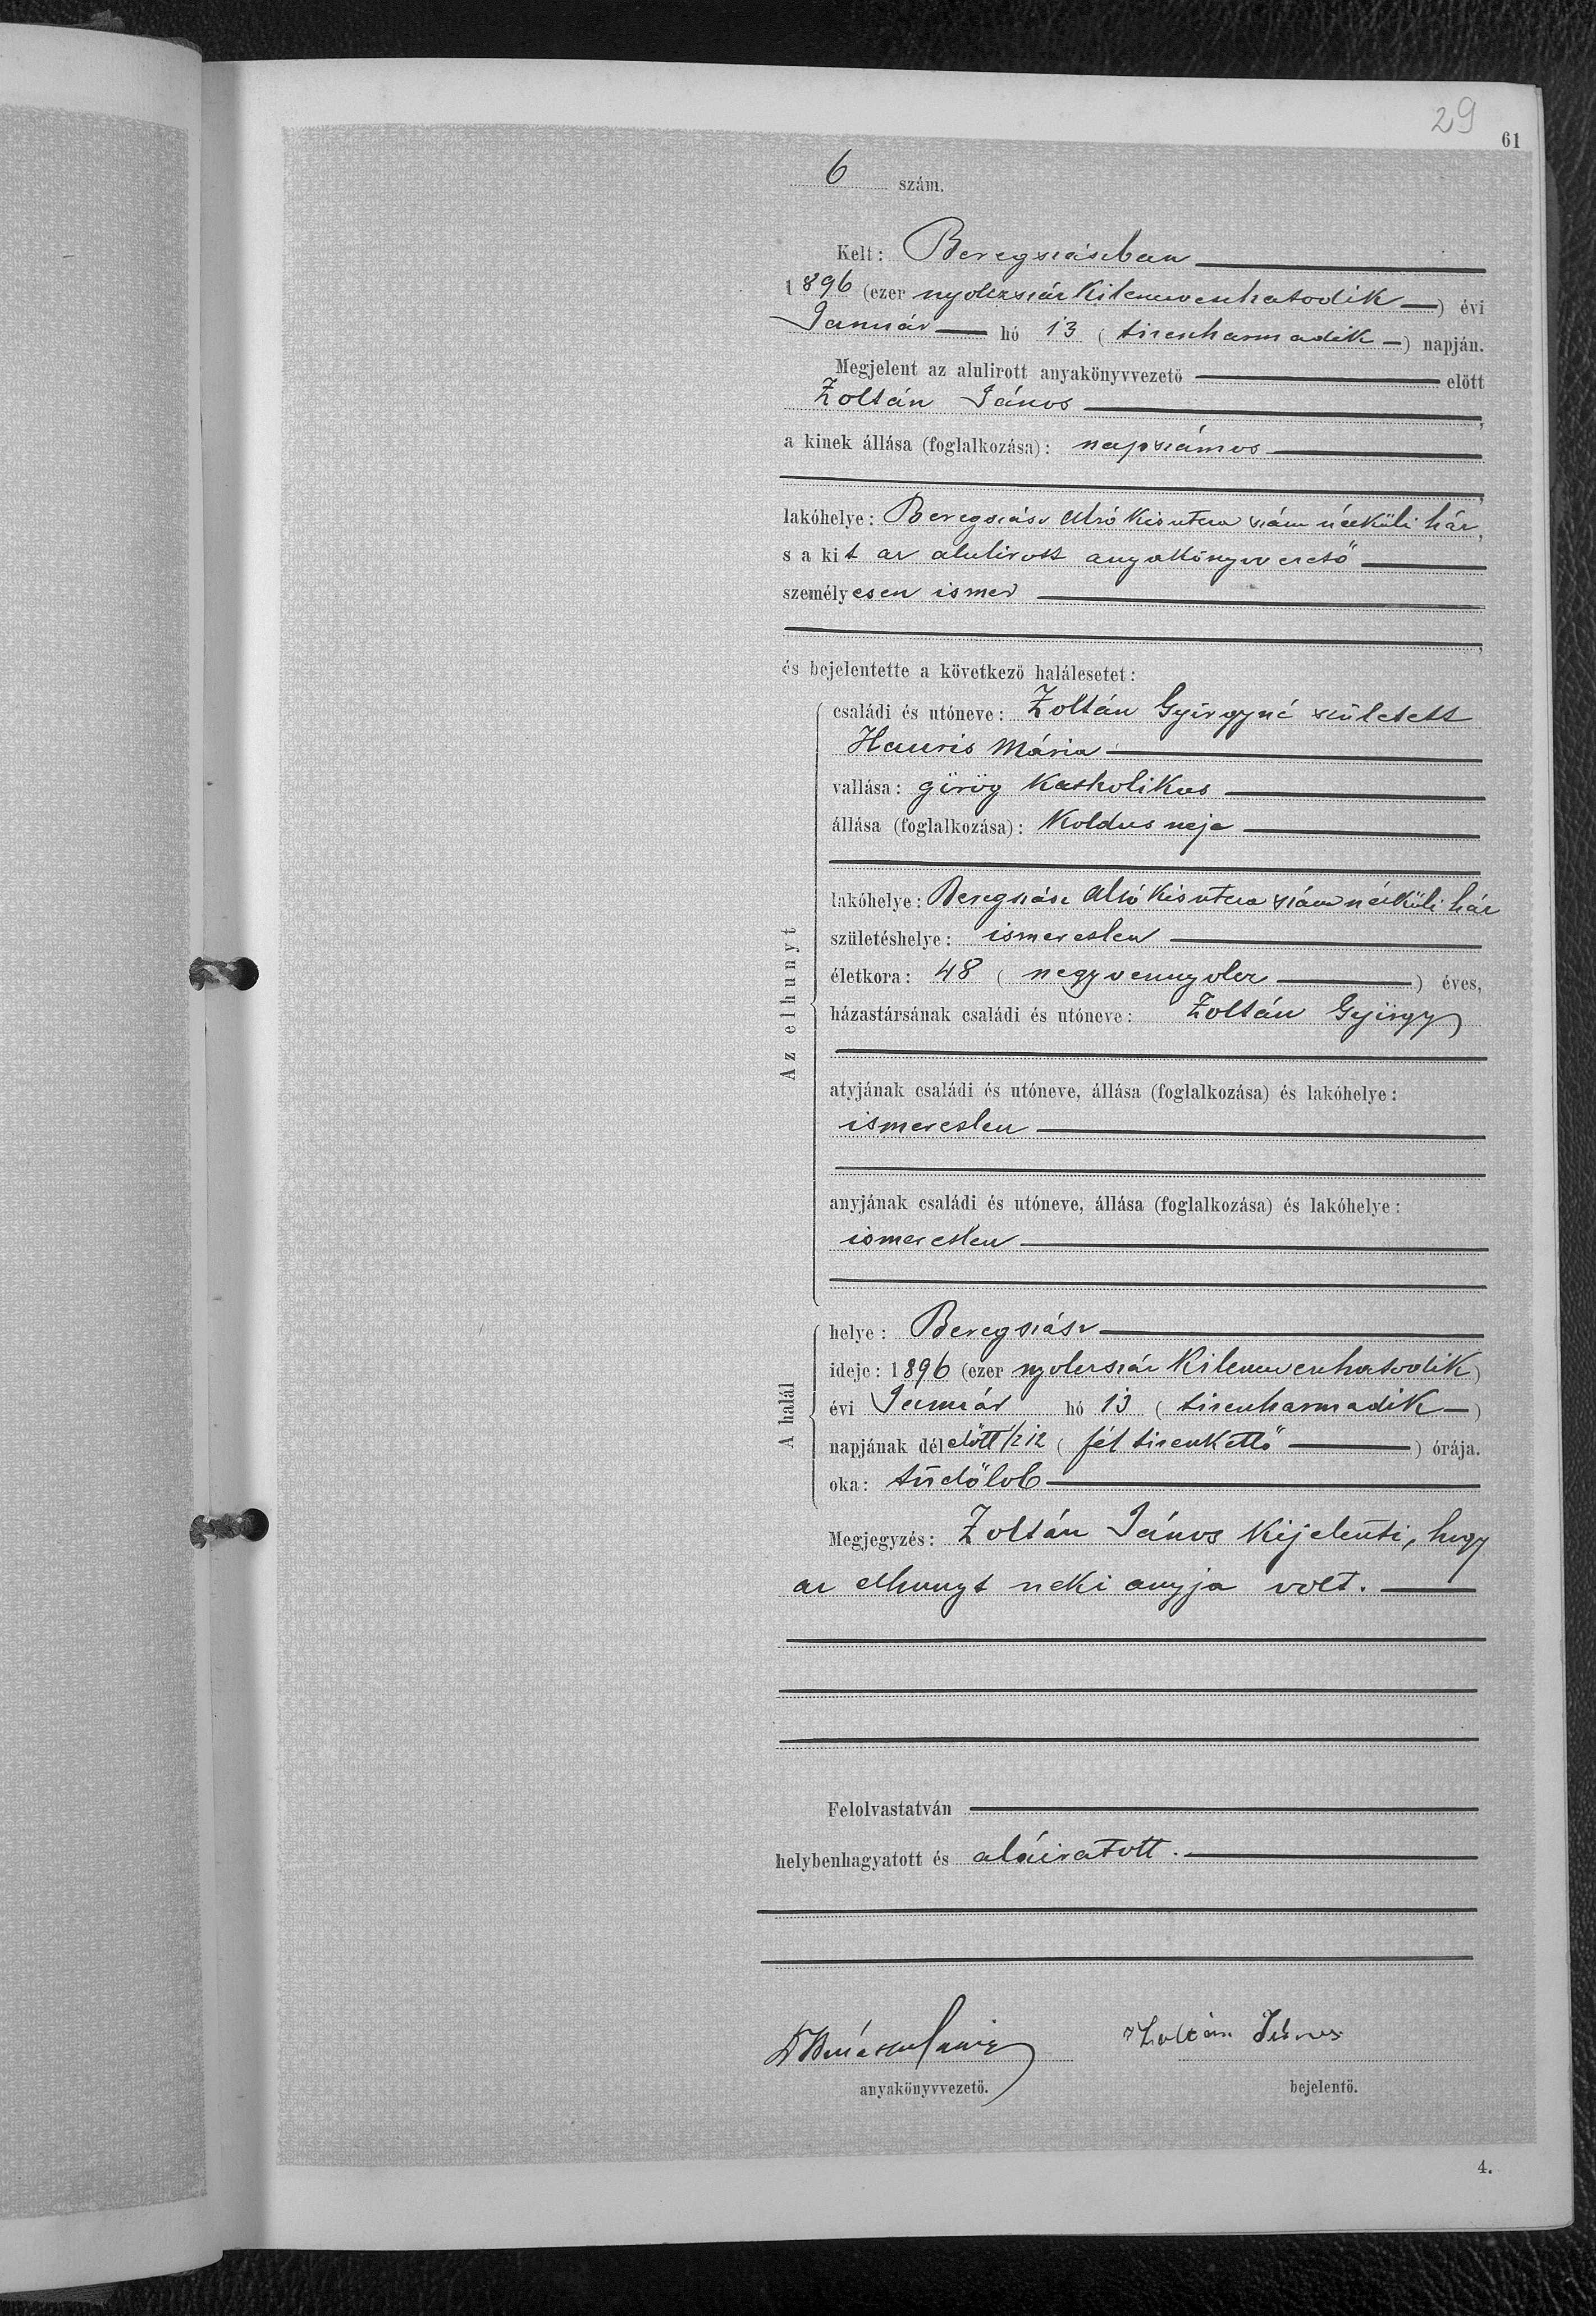 29
61
6 szám.
Kelt: Beregszászban
1896 (ezer nyolczszáz kilenczvenhatodik) évi
Január hó 13 (tizenharmadik) napján.
Megjelent az alulirott anyakönyvvezető előtt
Zoltán János,
a kinek állása (foglalkozása): napszámos
,
lakóhelye: Beregszász Alsó Kis utcza szám nélküli ház,
s a kit az alulirott anyakönyvvezető
személyesen ismer
,
és bejelentette a következő halálesetet:
Az elhunyt
családi és utóneve: Zoltán Györgyné született
Hauris Mária
vallása: görög katholikus
állása (foglalkozása): Koldus neje
lakóhelye: Beregszász Alsó Kis utcza szám nélküli ház
születéshelye: ismeretlen
életkora: 48 (negyvennyolcz) éves,
házastársának családi és utóneve: Zoltán György
atyjának családi és utóneve, állása (foglalkozása) és lakóhelye:
ismeretlen
anyjának családi és utóneve, állása (foglalkozása) és lakóhelye:
ismeretlen
A halál
helye: Beregszász
ideje: 1896 (ezer nyolczszáz kilenczvenhatodik)
évi Január hó 13 (tizenharmadik)
napjának délelőtt 1/2 12 (fél tizenkettő) órája.
oka: tüdőlob
Megjegyzés: Zoltán János kijelenti, hogy
az elhunyt neki anyja volt.
Felolvastatván
helybenhagyatott és aláiratott.
Zoltán János
anyakönyvvezető. bejelentő.
4.